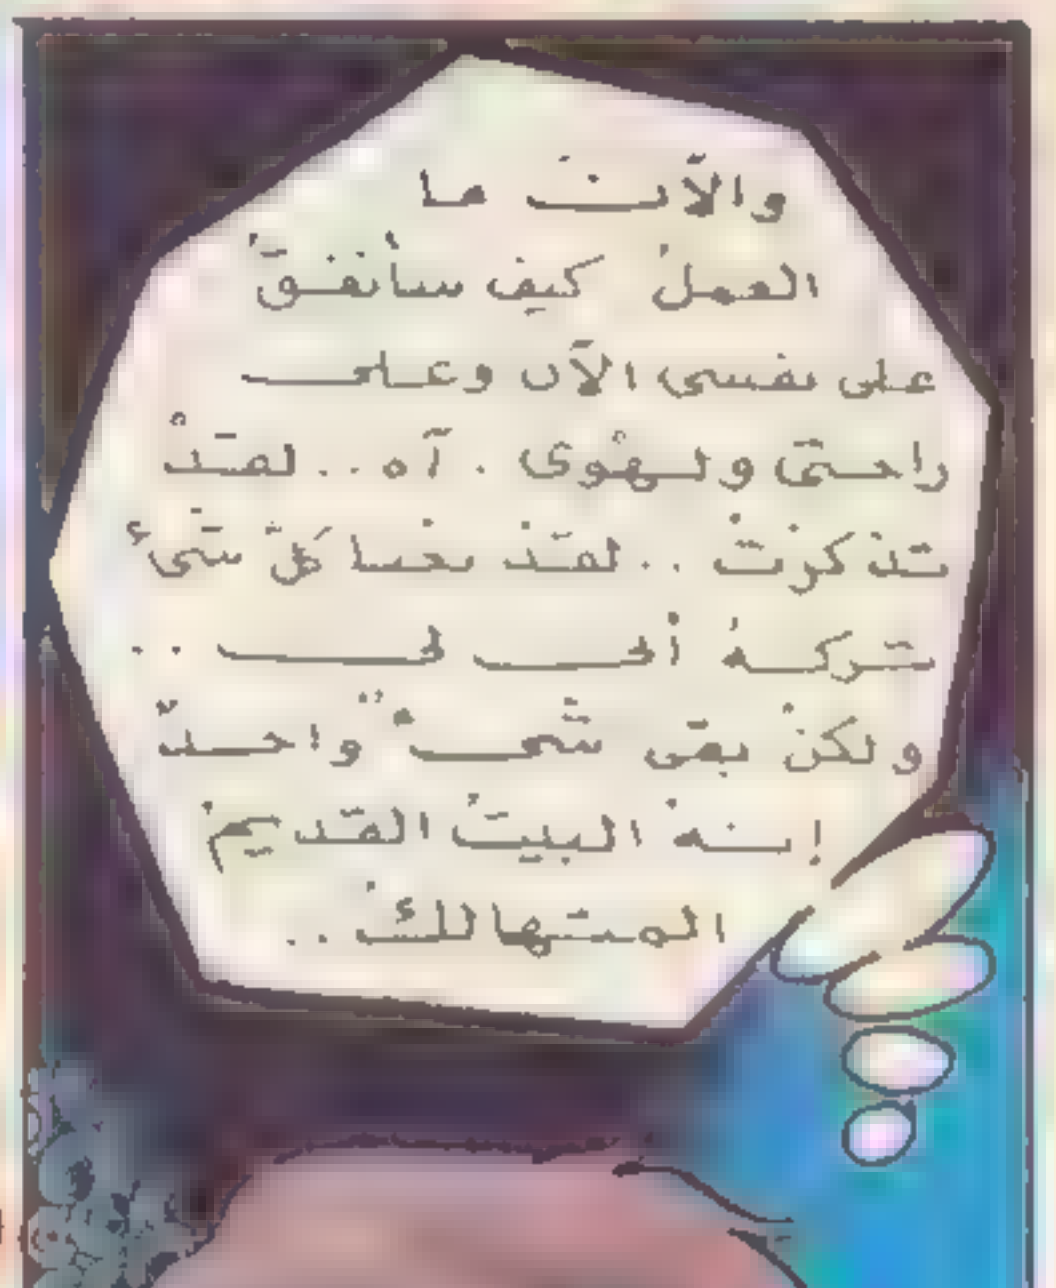 والآن ما
العمل كيف سأنفق
على نفسى الآن وعلى
راحتى ولهوى . آه .. لقد
تذكرت .. لقد بعنا كل شىء
تركه أبى لى ..
ولكن بقى شىء واحد
إنه البيت القديم
المتهالك ..